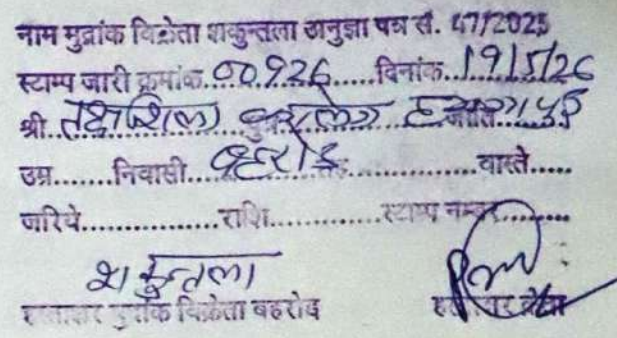 नाम मुद्रांक विक्रेता शकुन्तला अनुज्ञा पत्र सं. 47/2025
स्टाम्प जारी क्रमांक.00926.....दिनांक.19/5/26
श्री तक्षशिला
उम्र.......निवासी...बहरोड़..............वास्ते.....
जरिये................राशि.............स्टाम्प नम्बर.........
शकुन्तला
हस्ताक्षर मुद्रांक विक्रेता बहरोद हस्ताक्षर क्रेता